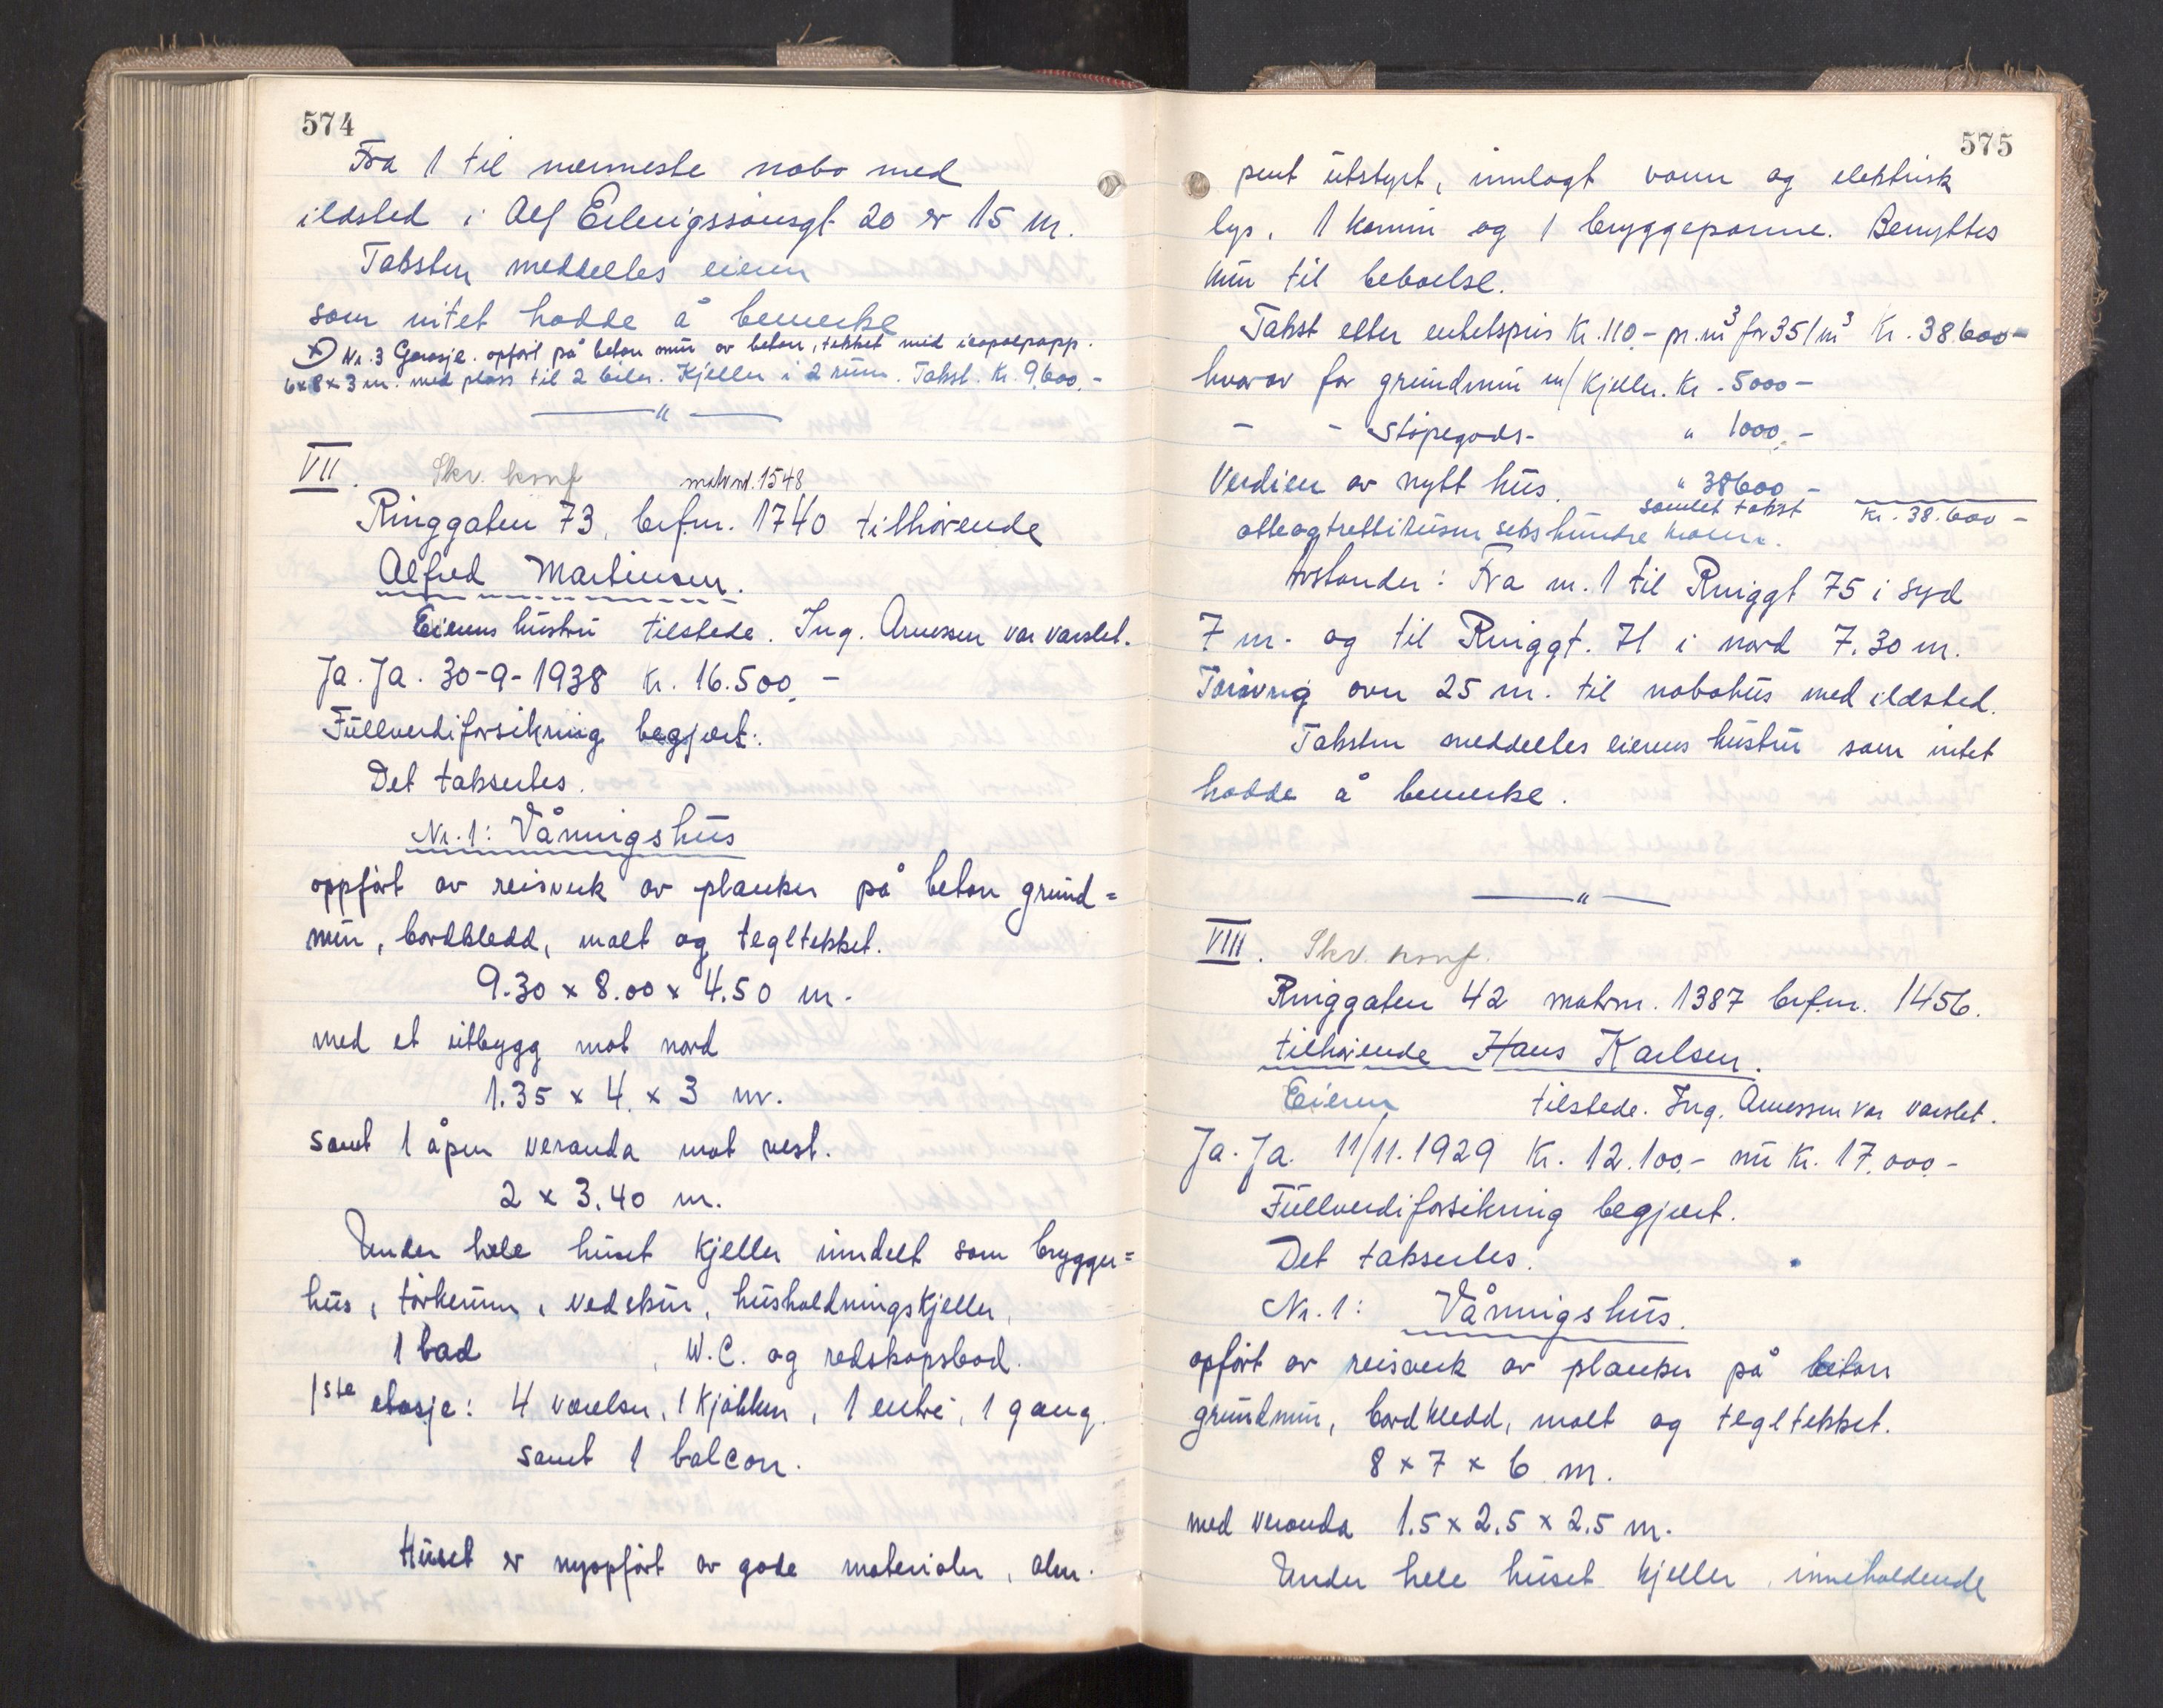 574
Fra 1 til nærmeste nabo med
ildsted i Alf Erlingssønsgt 20 er 15 m.
Taksten meddeeltes eieren
som intet hadde å bemerke
x) Nr. 3 Garasje. opført på beton mur av beton, tekket med icopalpapp.
6x8x3 m. med plass til 2 biler. Kjeller i 2 rum. Takst. Kr. 9,600,-
— " —
VII. Skv. konf matr.nr. 1548
Ringgaten 73, brf.nr. 1740 tilhørende
Alfred Martinsen.
Eierens hustru tilstede. Ing. Arnessen var varslet.
Ja. Ja. 30-9-1938 kr. 16.500,-
Fullverdiforsikring begjært.
Det takseertes.
Nr. 1: Våningshus
oppført av reisverk av planker på beton grund=
mur, bordkledd, malt og tegltekket.
9.30 x 8.00 x 4.50 m.
med et utbygg mot nord
1.35 x 4. x 3 m.
samt 1 åpen veranda mot vest.
2 x 3.40 m.
Under hele huset kjeller inndelt som brygger=
hus, tørkerum, vedskur, husholdningskjeller,
1 bad , W.C. og redskapsbod.
1ste etasje: 4 værelser, 1 kjøkken, 1 entré, 1 gang.
samt 1 balcon.
Huset er nyopført av gode materialer, alm.
575
pent utstyrt, innlagt vann og elektrisk
lys. 1 kamin og 1 bryggepanne. Benyttes
kun til beboelse.
Takst etter enhetspris Kr. 110.- pr. m³ for 351 m³ Kr. 38.600-
hvorav for grundmur m/ kjeller. Kr. 5000-
- - støpegods- " 1000,-
Verdien av nytt hus. " 38600-
samlet takst Kr. 38.600-
åtteogtrettitusen sekshundre kroner.
Avstander: Fra nr. 1 til Ringgt 75 i syd
7 m. og til Ringgt. 71 i nord 7.30 m.
Forøvrig over 25 m. til nabohus med ildsted.
Taksten meddeltes eierens hustru som intet
hadde å bemerke.
— " —
VIII. Skv. konf.
Ringgaten 42 matr.nr. 1387 brf.nr. 1456.
tilhørende Hans Karlsen.
Eieren tilstede. Ing. Arnessen var varslet.
Ja. Ja. 11/11. 1929 Kr. 12.100.- nu Kr. 17.000-
Fullverdiforsikring begjært.
Det takseertes.
Nr. 1: Våningshus.
opført av reisverk av planker på beton
grundmur, bordkledd, malt og tegltekket.
8 x 7 x 6 m.
med veranda 1.5 x 2.5 x 2.5 m.
Under hele huset kjeller, inneholdende